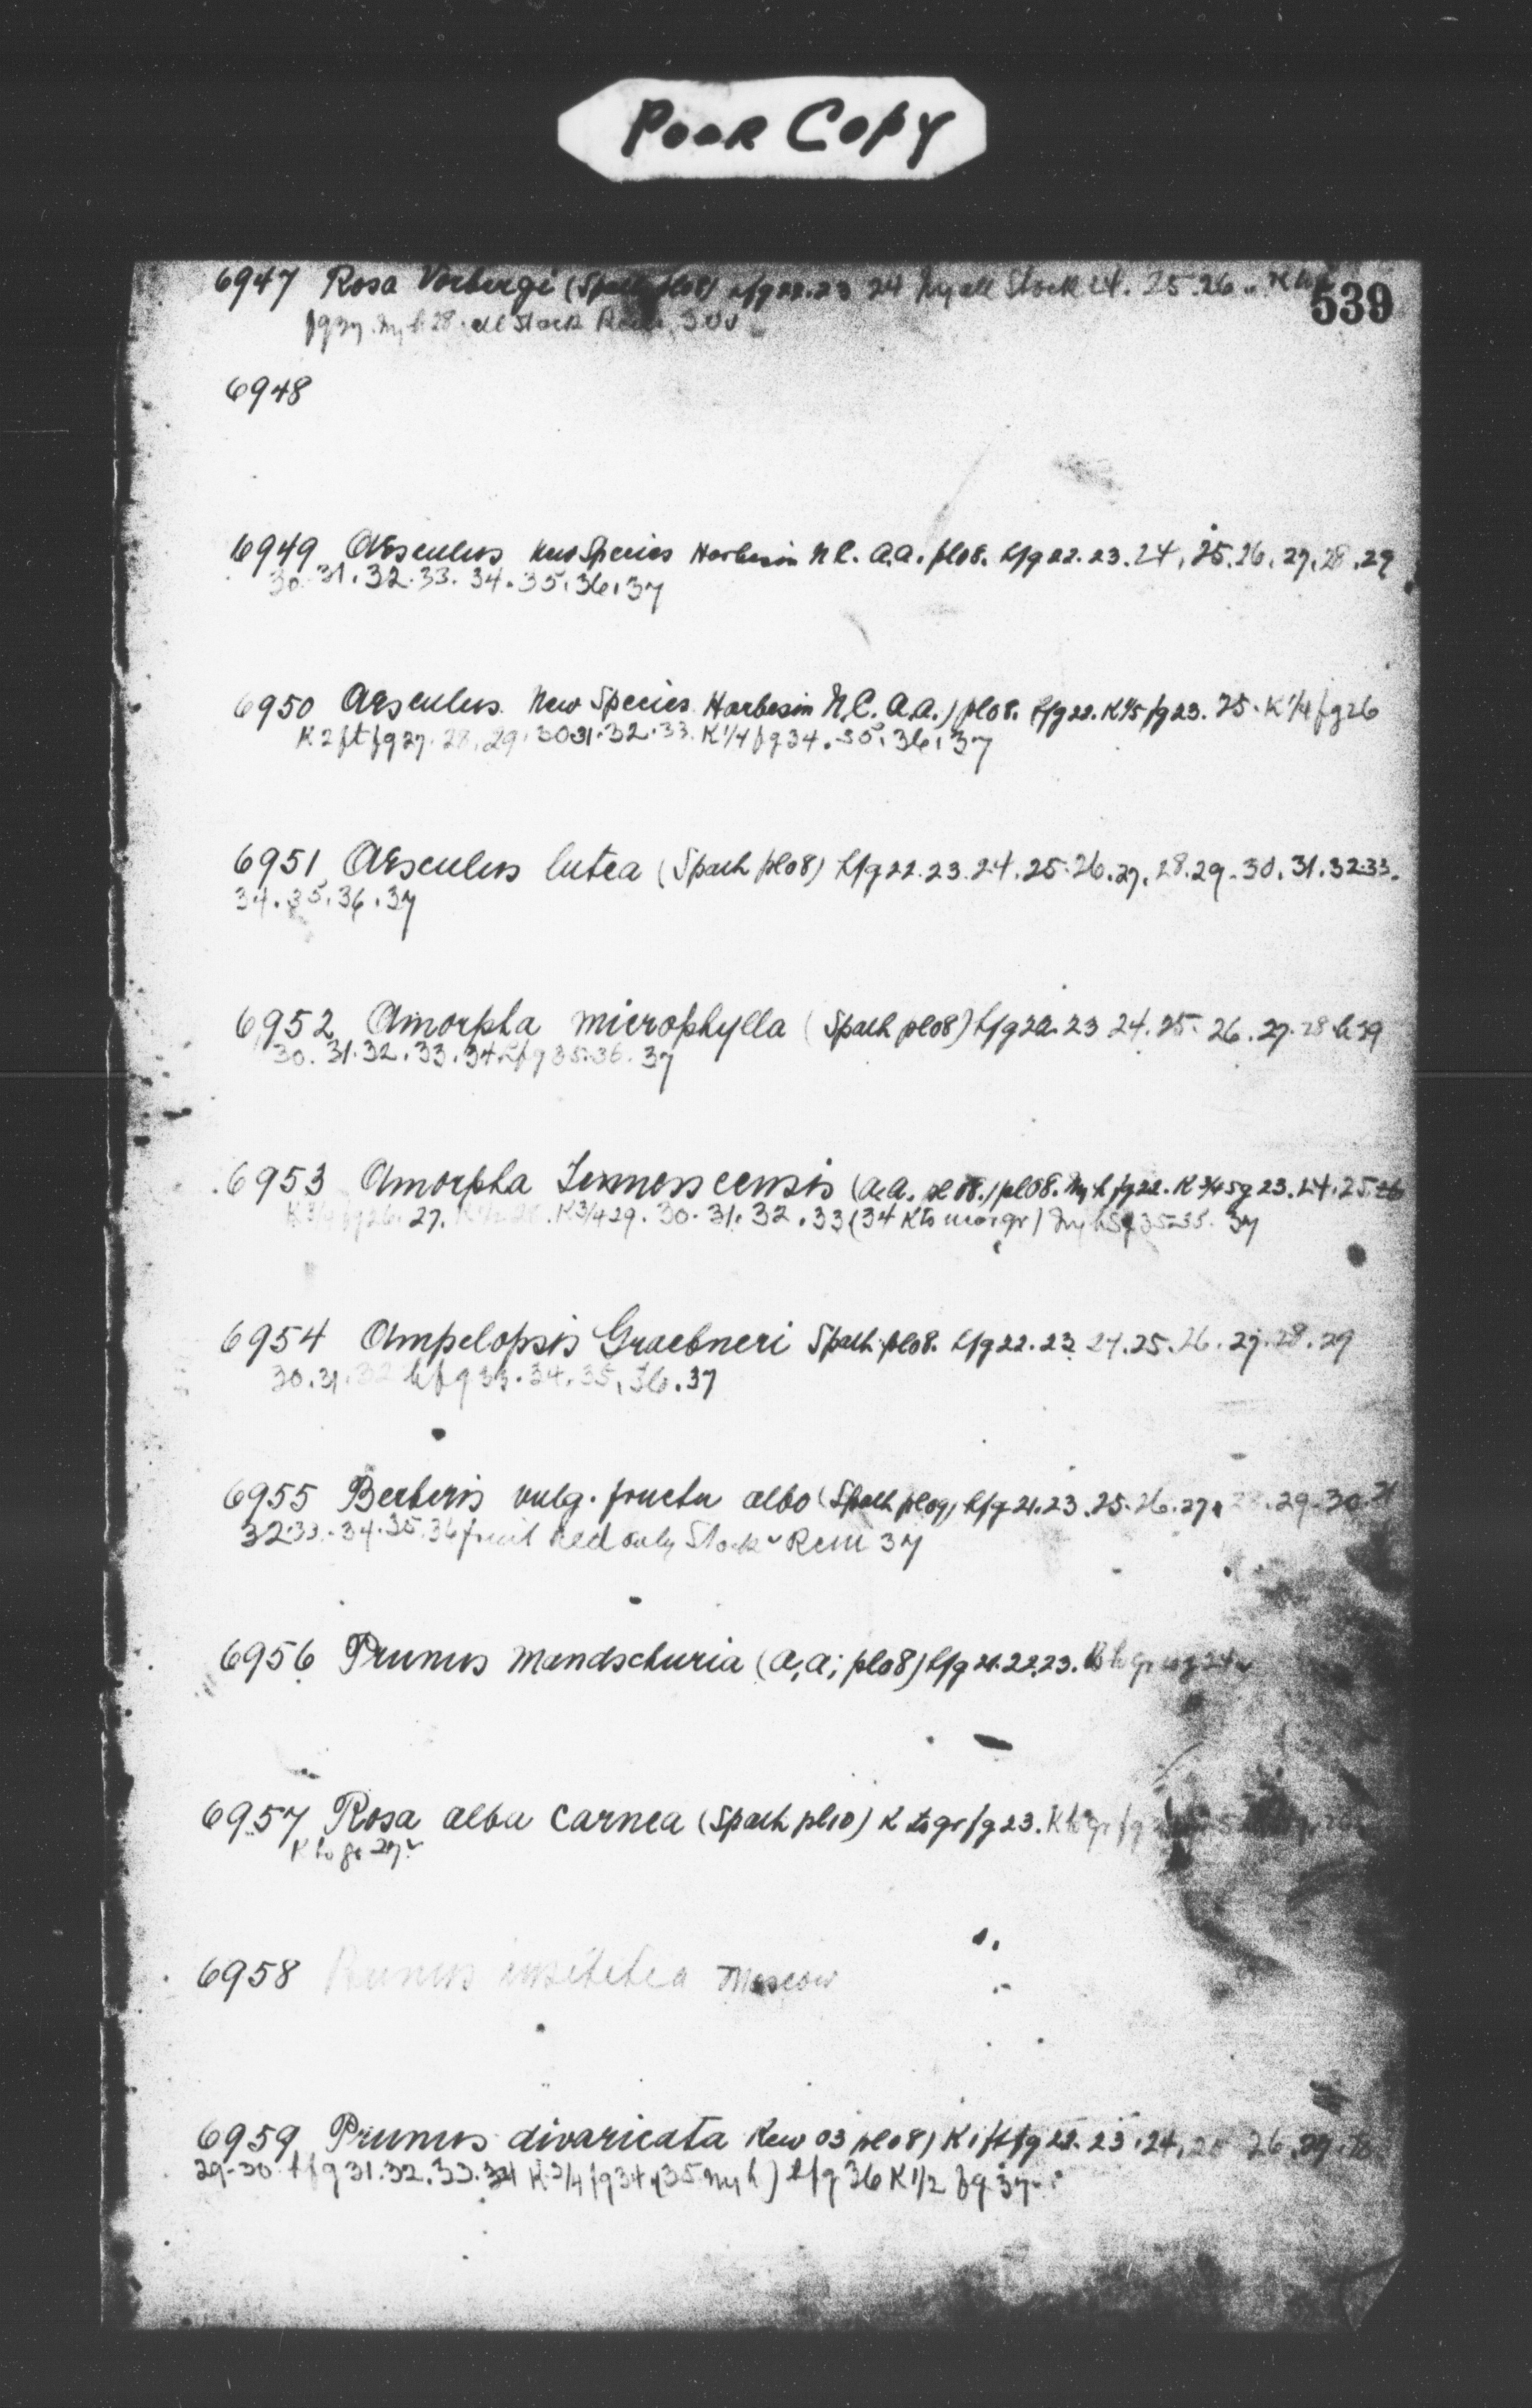 POOR COPY
539
6947 Rosa Vorbergi (Spath pl08) hfg 22.23 24 Stock 24. 25.26
28. Stock
6948
6949 Aesculus new Species Harbison N.C. A.A. pl08. hfg 22. 23. 24. 25. 26. 27. 28. 29
30. 31. 32. 33. 34. 35. 36. 37
6950 Aesculus New Species Harbison N.C. A.A.) pl08. hfg 22. K 1/5 fg 23. 25. K 1/4 fg 26
K 2 ft fg 27. 28. 29. 30 31. 32. 33. K 1/4 fg 34. 35. 36. 37
6951 Aesculus lutea (Spath pl08) hfg 22. 23. 24. 25. 26. 27. 28. 29. 30. 31. 32. 33.
34. 35. 36. 37
6952 Amorpha microphylla (Spath pl08) hfg 22. 23 24. 25. 26. 27. 28 h 29
30. 31. 32. 33. 34 hfg 35. 36. 37
6953 Amorpha Tennesceensis (A.A. pl 08.) pl08. fg 22. K 3/4 fg 23. 24. 25. 26
K 3/4 fg 26. 27. 28. K 3/4 29. 30. 31. 32. 33 (34 K to 37
6954 Ampelopsis Graebneri Spath pl08. hfg 22. 23 24. 25. 26. 27. 28. 29
30. 31. 32 hfg 33. 34. 35. 36. 37
6955 Berberis vulg. fructu albo (Spath pl09) hfg 21. 23. 25. 26. 27. 28. 29. 30. 31
32. 33. 34. 35. 36 fruit Red only Stock Rem 37
6956 Prunus Mandschuria (A,A; pl08) hfg 21. 22. 23.
6957 Rosa alba carnea (Spath pl10) K to gr fg 23. K to gr fg
K to gr 27
6958 Prunus Moscow
6959 Prunus divaricata Kew 03 pl08) K 1 ft fg 22. 23. 24. 25 26. 27. 28
29-30 hfg 31. 32. 33. 34 K 3/4 fg 34 (35 ) hfg 36 K 1/2 fg 37